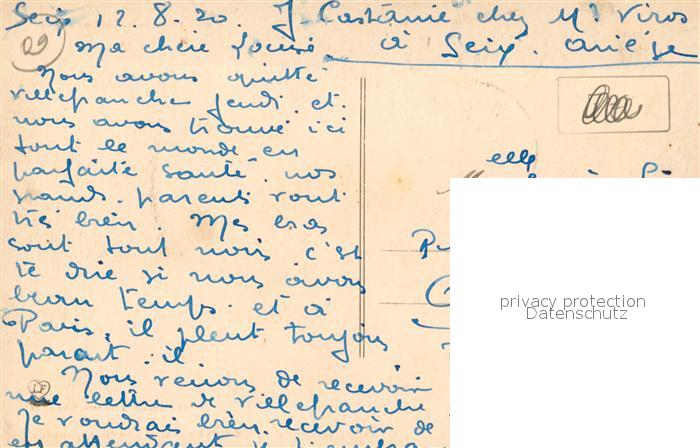 Seix 12.8.20. J. Castérnie chez Mr Viros
à Seix. Ariège
29
Ma chère Louise
Nous avons quitté
Villefranche jeudi et
nous avons trouvé ici
tout le monde en
parfaite santé. nos
grands-parents vont
très bien. Mes bras
sont tout noirs c'est
te dire si nous avons
beau temps. et à
Paris, il pleut toujours
paraît-il
Nous venons de recevoir
une lettre de Villefranche
Je voudrais bien recevoir de
en attendant je t'embra
elle
privacy protection
Datenschutz